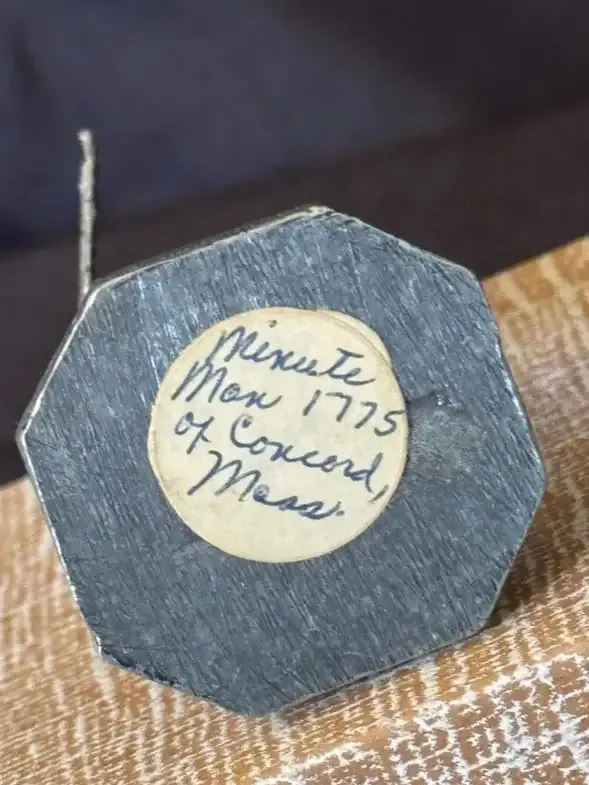 Minute
Man 1775
of Concord,
Mass.